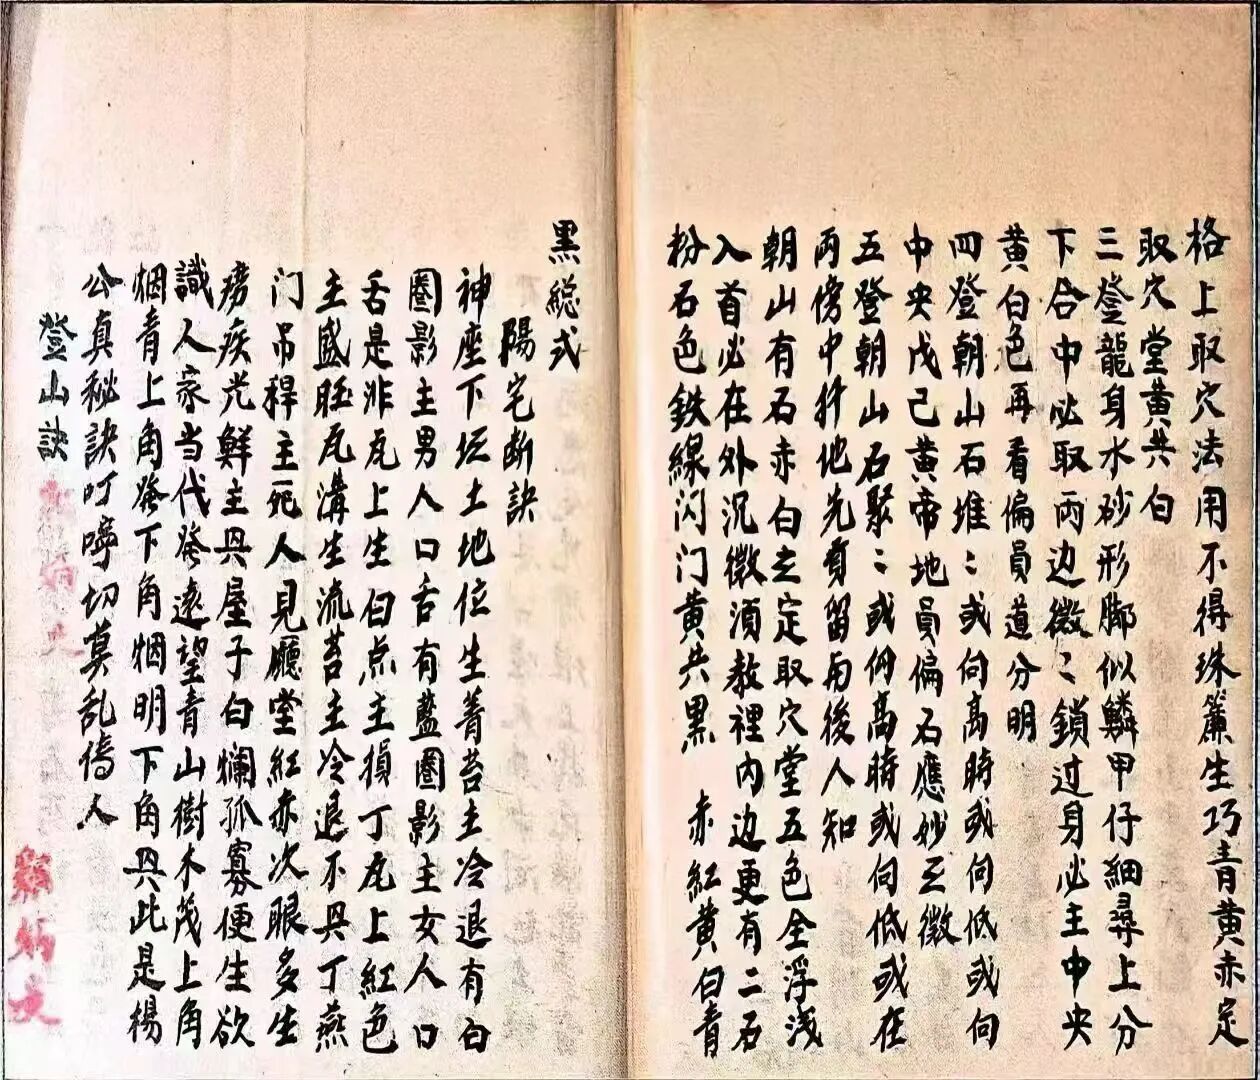 格上取穴法用不得珠簾生巧青黄赤定
取穴堂黄共白
三登龍身水砂形脚似鱗甲仔細尋上分
下合中必取両边微〻鎖过身必主中央
黄白色再看偏員道分明
四登朝山石堆〻或向高時或向低或向
中央戊己黄帝地員偏石應妙玄微
五登朝山石聚〻或何高時或向低或在
両傍中扦地先身留與後人知
朝山有石赤白之定取穴堂五色全浮浅
入首必在外沉微須教裡内边更有二石
粉石色鉄線闪门黄共黑 赤紅黄白青
黑総式
陽宅断訣
神座下坛土地位生菁苔主冷退有白
圈影主男人口舌有藍圈影主女人口
舌是非瓦上生白点主損丁瓦上紅色
主盛旺瓦溝生流苔主冷退不興丁燕
门吊稈主死人見廳堂紅赤次眼多生
痨疾光鮮主興屋子白爛孤寡便生欲
識人家当代發遠望青山樹木茂上角
烟青上角發下角烟明下角興此是楊
公真秘訣叮嚀切莫乱傳人
登山訣